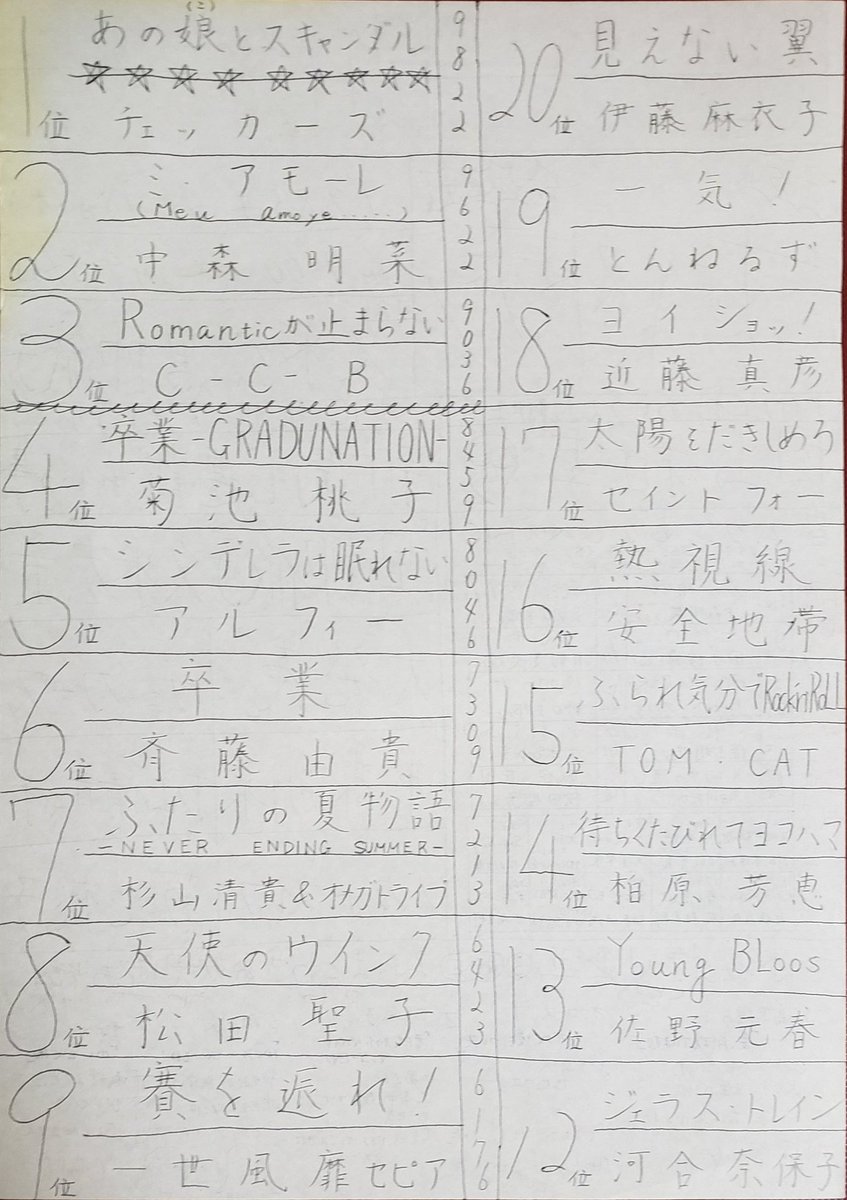 1位
あの娘(こ)とスキャンダル
☆☆☆☆ ☆☆☆☆☆
チェッカーズ
9822
2位
ミ・アモーレ
(Meu amore……)
中森明菜
9622
3位
Romanticが止まらない
C-C-B
9036
4位
卒業-GRADUNATION-
菊池桃子
8459
5位
シンデレラは眠れない
アルフィー
8046
6位
卒業
斉藤由貴
7309
7位
ふたりの夏物語
-NEVER ENDING SUMMER-
杉山清貴&オメガトライブ
7213
8位
天使のウインク
松田聖子
6423
9位
賽を振れ!
一世風靡セピア
6176
20位
見えない翼
伊藤麻衣子
19位
一気!
とんねるず
18位
ヨイショッ!
近藤真彦
17位
太陽をだきしめろ
セイントフォー
16位
熱視線
安全地帯
15位
ふられ気分でRock'n'RoLL
TOM・CAT
14位
待ちくたびれてヨコハマ
柏原芳恵
13位
Young BLoos
佐野元春
12位
ジェラス・トレイン
河合奈保子